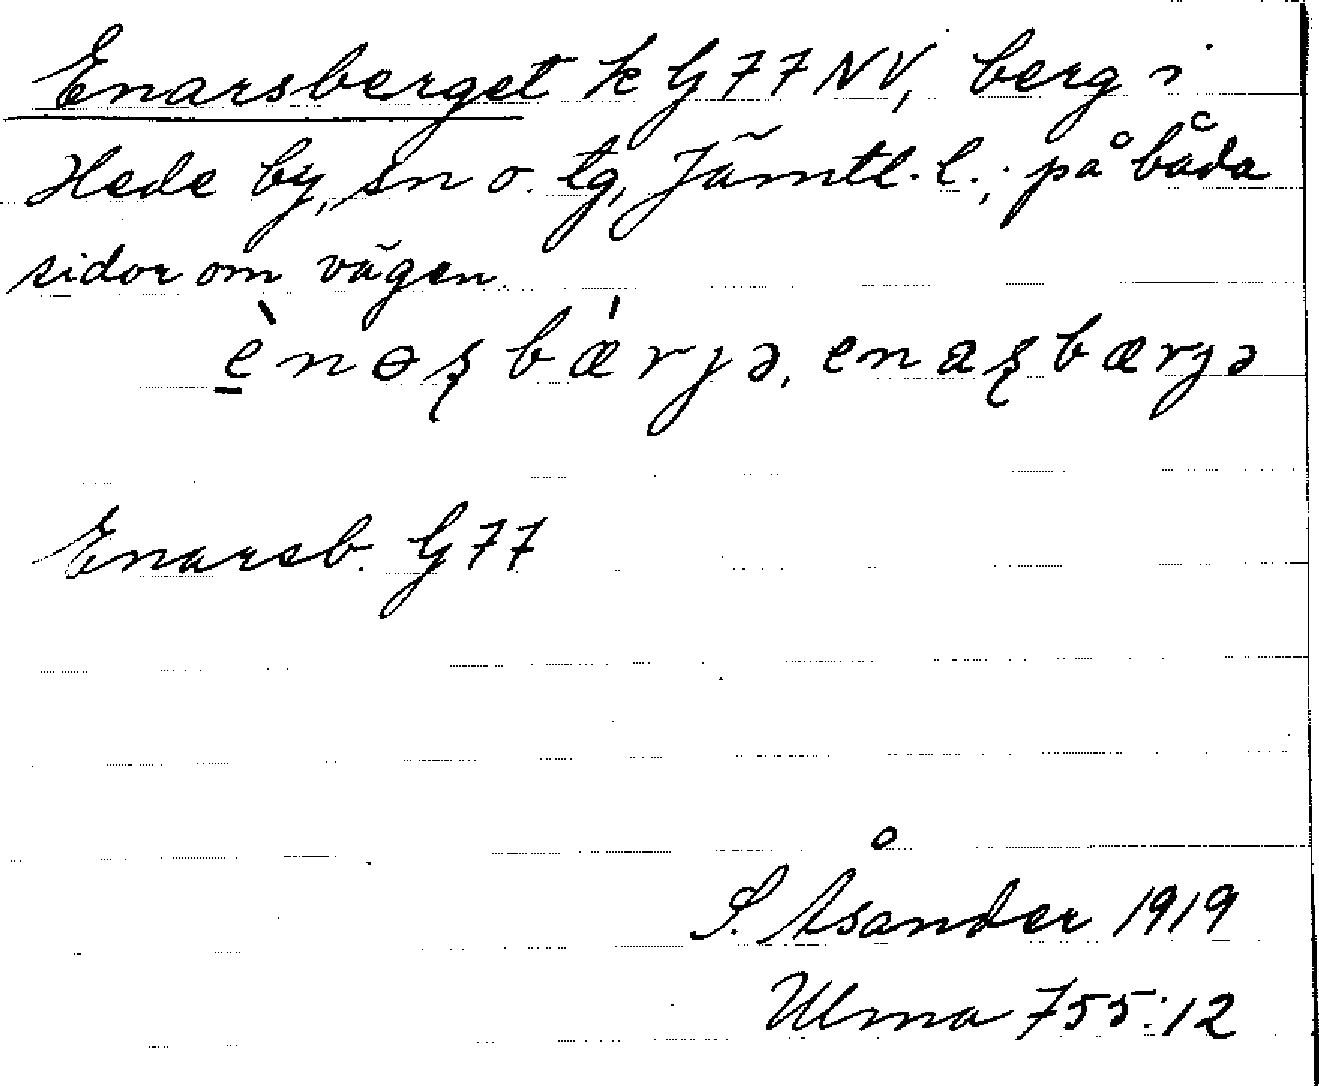 Enarsberget k G 77 NV, berg i
Hede by, sn o. tg, Jämtl. l.; på båda
sidor om vägen.
è̱nɵʂbǽrjə, enaʂbærjə
Enarsb. G 77
S. Åsander 1919
Ulma 755:12